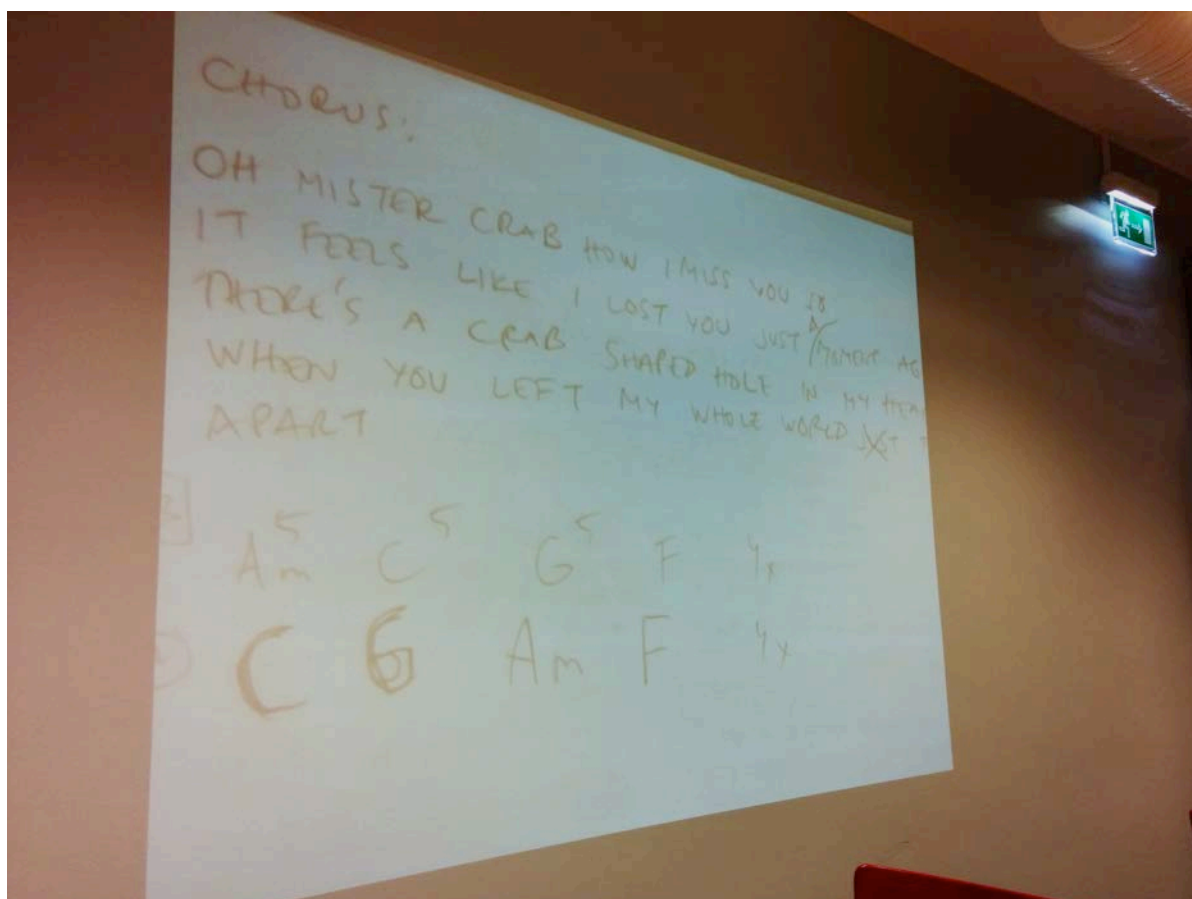 CHORUS:
OH MISTER CRAB HOW I MISS YOU SO
IT FEELS LIKE I LOST YOU JUST A MOMENT AG
THERE'S A CRAB SHAPED HOLE IN MY HEA
WHEN YOU LEFT MY WHOLE WORLD JUST T
APART
Am5 C5 G5 F 4x
C G Am F 4x